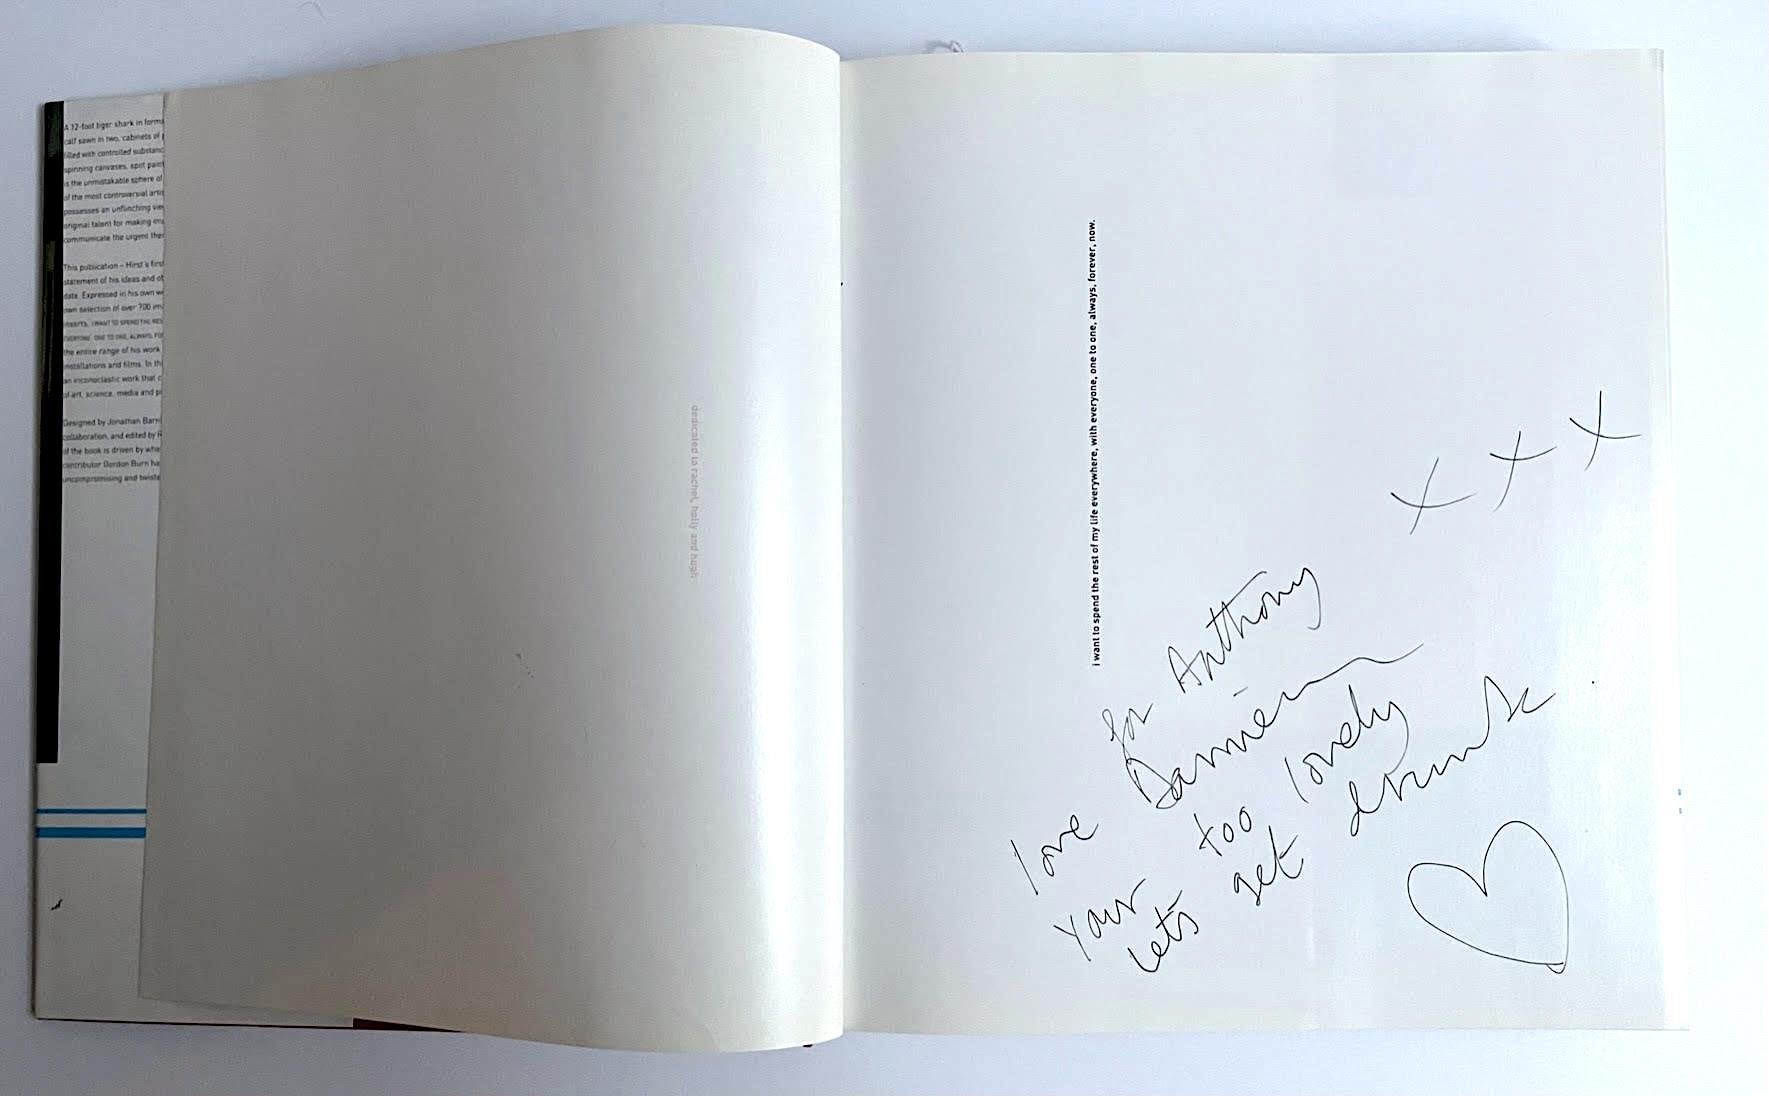 A 12-foot tiger shark in forma
calf sawn in two, cabinets of
filled with controlled substanc
spinning canvases, spot pain
is the unmistakable sphere of
of the most controversial artis
possesses an unflinching vie
original talent for making
communicate the urgent
This publication – Hirst's first
statement of his ideas and
date. Expressed in his own w
own selection of over 700
inserts, I WANT TO SPEND THE RES
EVERYONE, ONE TO ONE, ALWAYS, FOR
the entire range of his work
installations and films. In
an inconoclastic work that
of art, science, media and
Designed by Jonathan Barn
collaboration, and edited by R
of the book is driven by
contributor Gordon Burn ha
uncompromising and twiste
dedicated to rachel, holly and hugh
i want to spend the rest of my life everywhere, with everyone, one to one, always, forever, now.
x x x
for Anthony
love Damien
Your too lovely
Lets get drunk